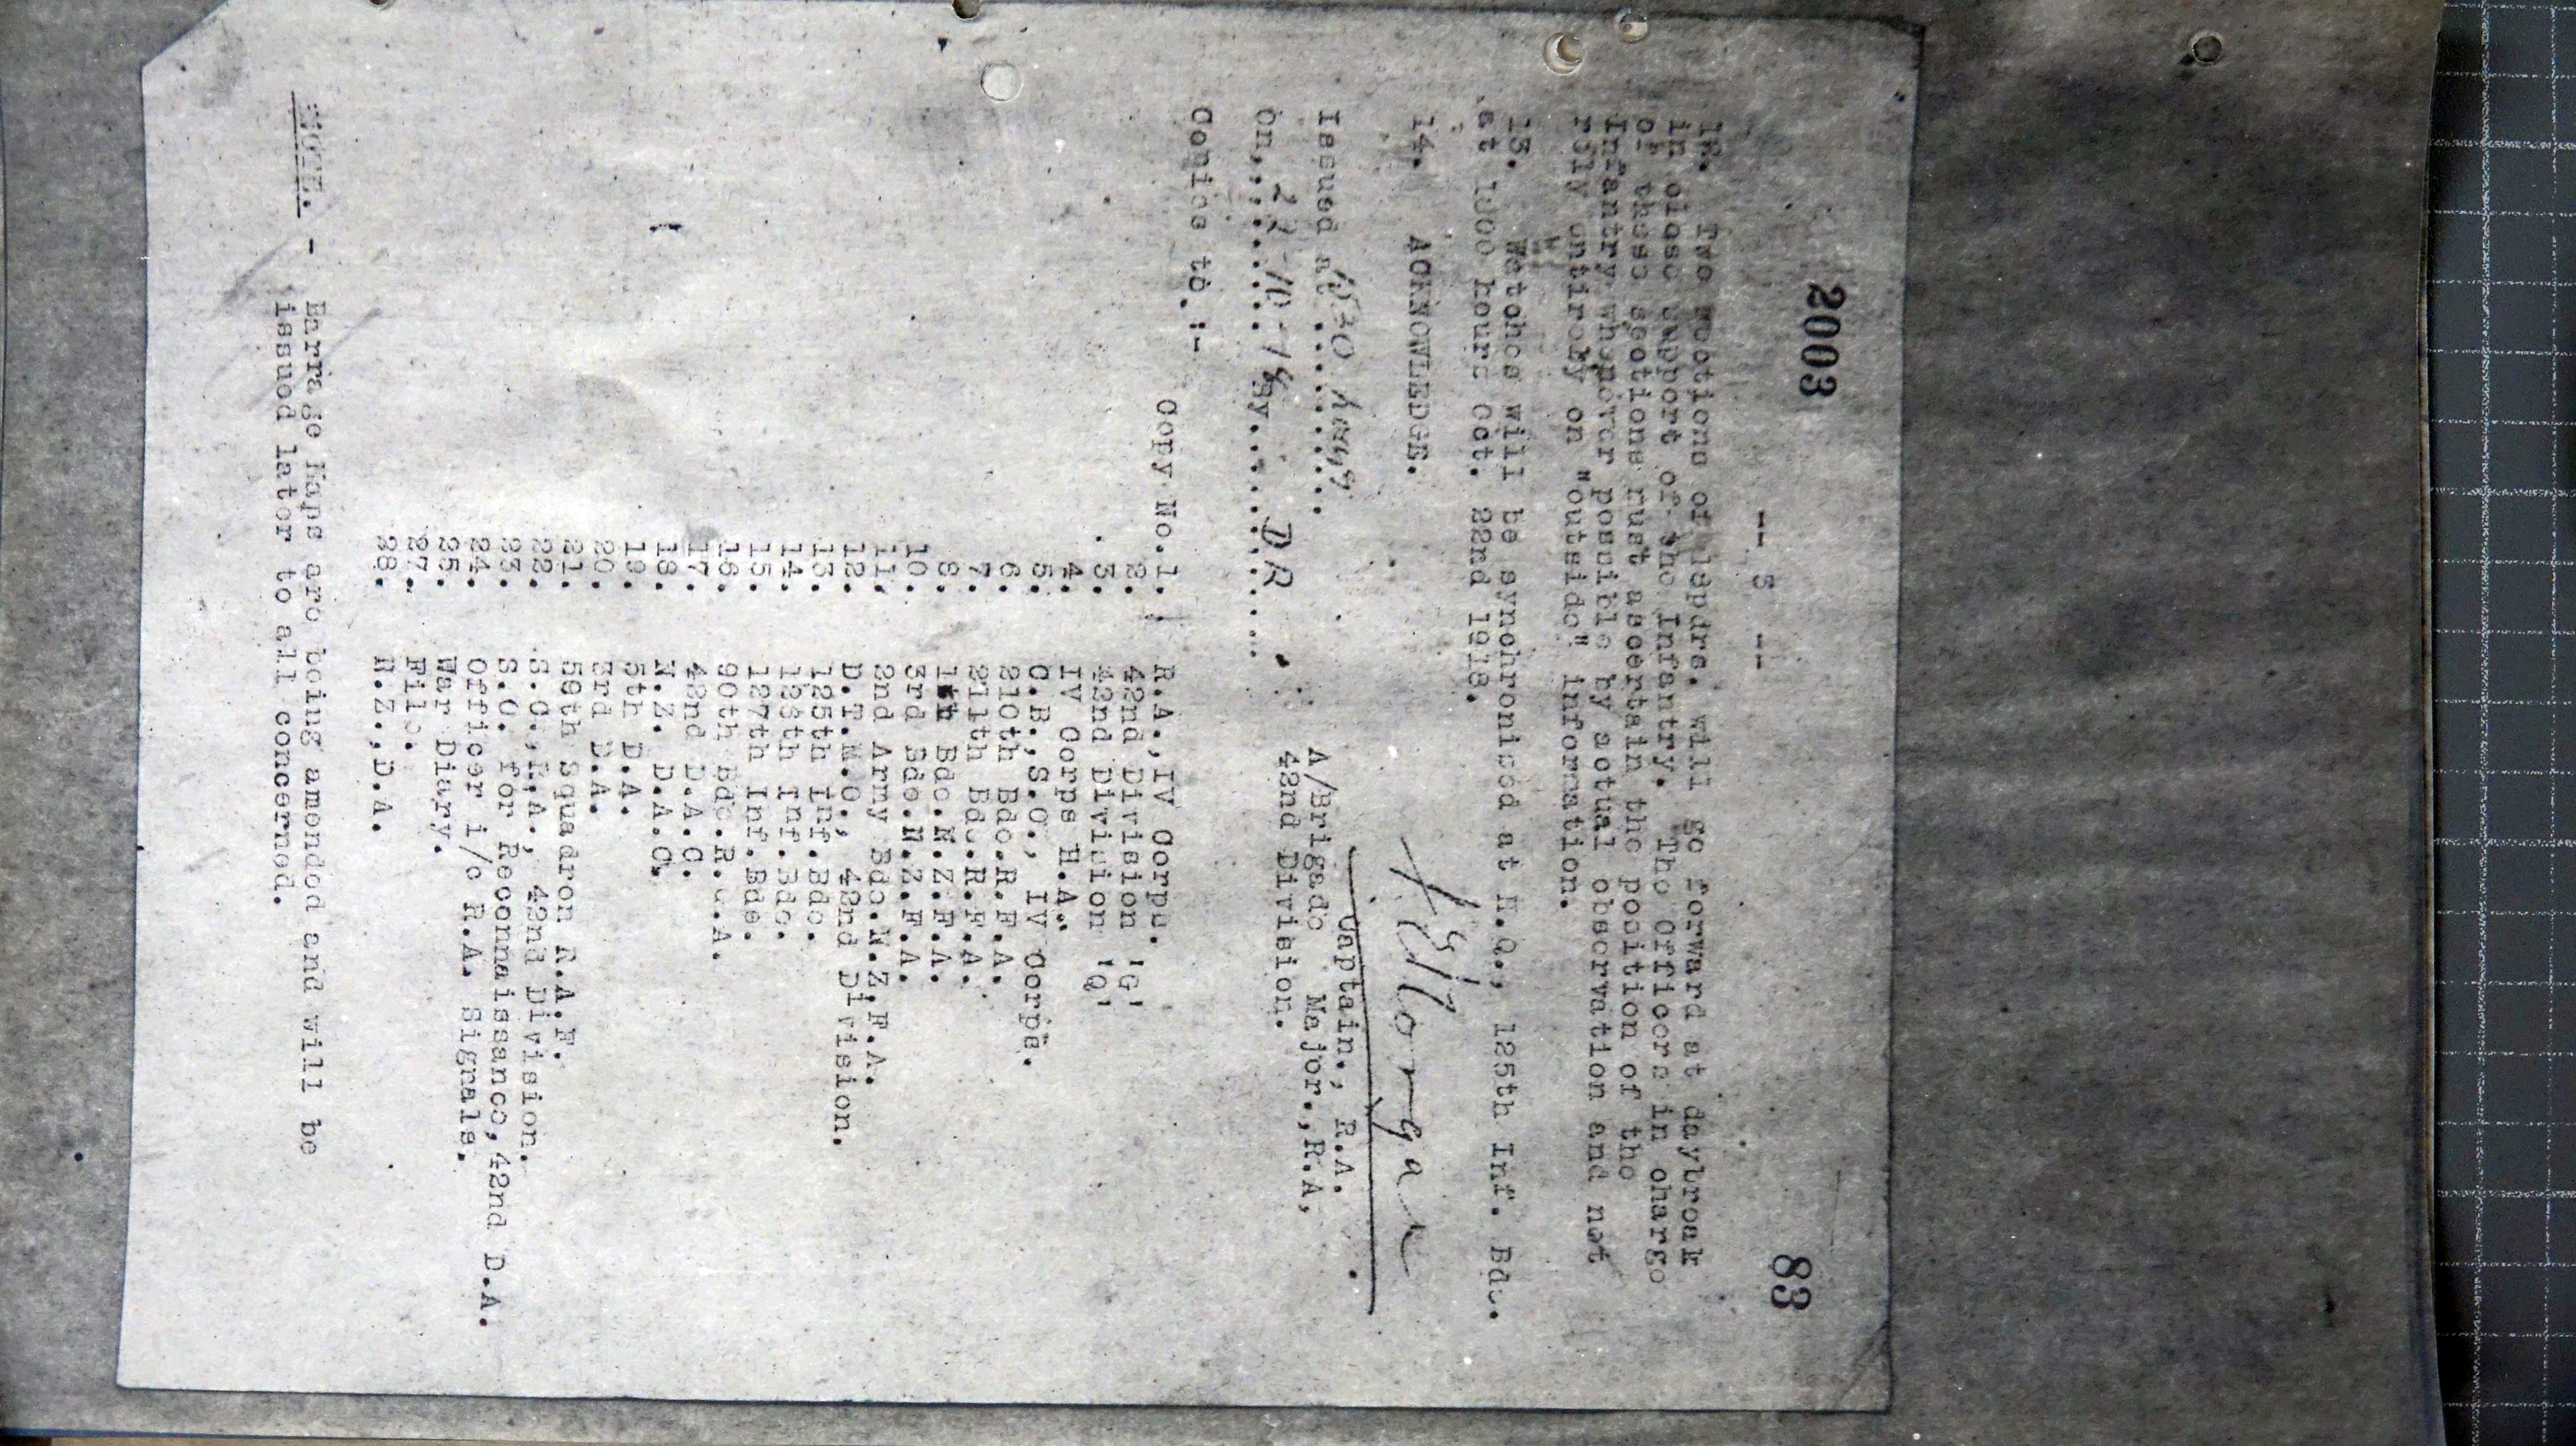 2003 83
-- 5 --
12. Two sections of 18pdrs. will go forward at daybreak
in close support of the Infantry. The Officers in charge
of these sections must ascertain the position of the
Infantry whenever possible by actual observation and not
rely entirely on "outside" information.
13. Watches will be synchronised at H.Q., 125th Inf. Bde.
at 1300 hours Oct. 22nd 1918.
14. ACKNOWLEDGE.
Issued at hours
On, 22-10-18 By DR
Captain., R.A.
A/Brigade Major.,R.A,
42nd Division.
Copies to. :-
Copy No.1. R.A.,IV Corps.
2. 42nd Division 'G'
3. 42nd Division 'Q'
4. IV Corps H.A.
5. C.B.,S.O., IV Corps.
6. 210th Bde.R.F.A.
7. 211th Bde.R.F.A.
8. 1st Bde.N.Z.F.A.
10. 3rd Bde.N.Z.F.A.
11. 2nd Army Bde.N.Z.F.A.
12. D.T.M.O., 42nd Division.
13. 125th Inf.Bde.
14. 126th Inf.Bde.
15. 127th Inf.Bde.
16. 90th Bde.R.G.A.
17. 42nd D.A.C.
18. N.Z. D.A.C.
19. 5th D.A.
20. 3rd D.A.
21. 59th Squadron R.A.F.
22. S.C.,R.A., 42nd Division.
23. S.O. for Reconnaissance,42nd D.A.
24. Officer i/c R.A. Signals.
25. War Diary.
27. File.
28. N.Z.,D.A.
NOTE. - Barrage Maps are being amended and will be
issued later to all concerned.